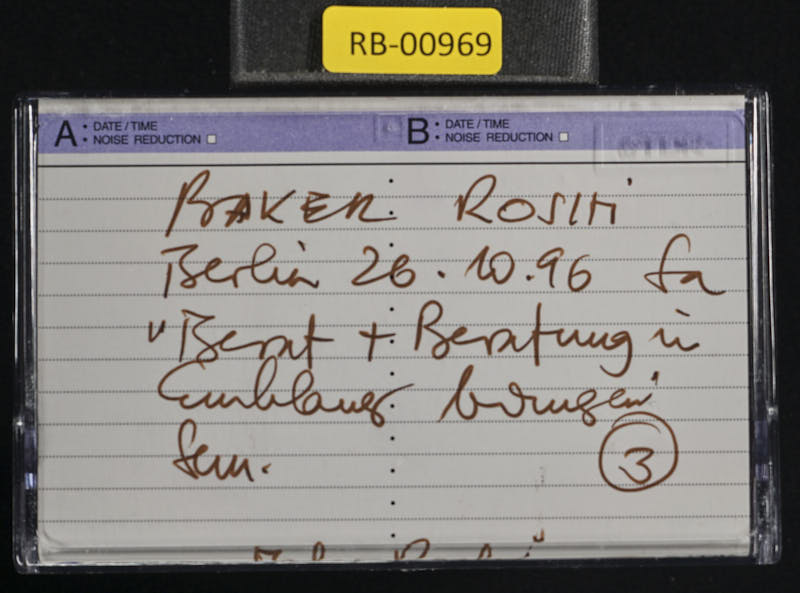 RB-00969
A • DATE / TIME
• NOISE REDUCTION
B • DATE / TIME
• NOISE REDUCTION
BAKER ROSHI
Berlin 26.10.96 Sa
"Berat + Beratung in
Einklang bringen"
Sem. 3